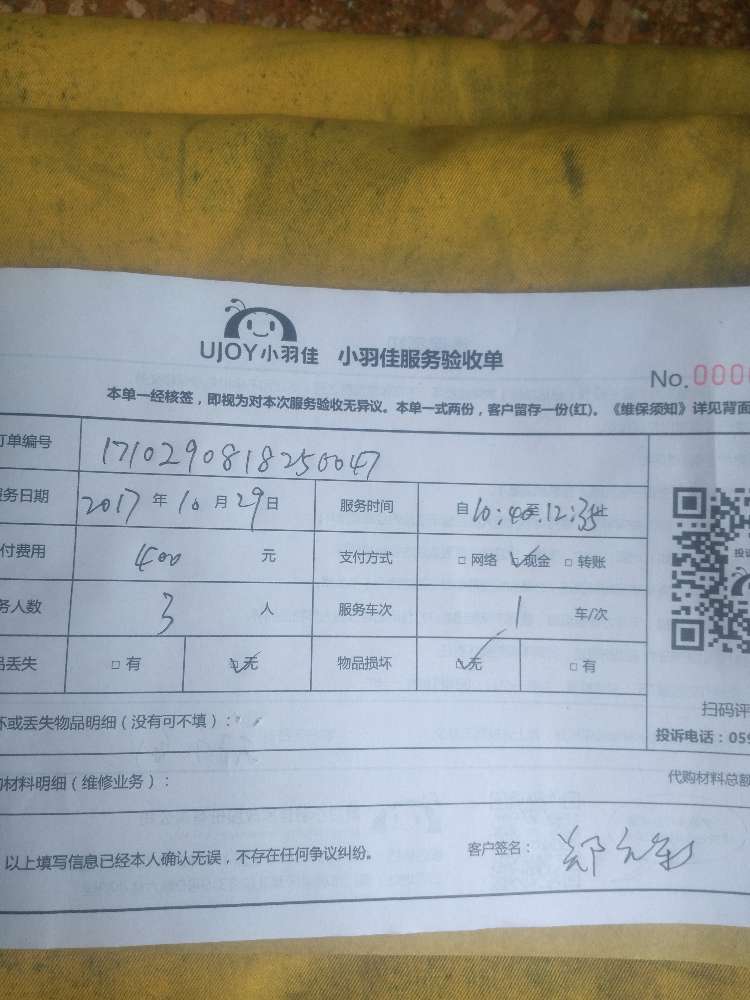 UJOY小羽佳 小羽佳服务验收单
No.0000
本单一经核签，即视为对本次服务验收无异议。本单一式两份，客户留存一份(红)。《维保须知》详见背面
订单编号 1710290818250047
服务日期 2017年10月29日 服务时间 自10:40至12:35止
付费用 400 元 支付方式 □网络 ☑现金 □转账
务人数 3 人 服务车次 1 车/次
品丢失 □有 ☑无 物品损坏 ☑无 □有
扫码评
坏或丢失物品明细（没有可不填）：
投诉电话：059
购材料明细（维修业务）：
代购材料总额
以上填写信息已经本人确认无误，不存在任何争议纠纷。 客户签名：郑